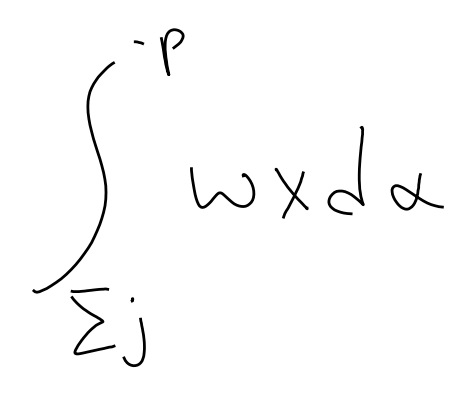 \int_{\sum j}^{-p} w x d \alpha